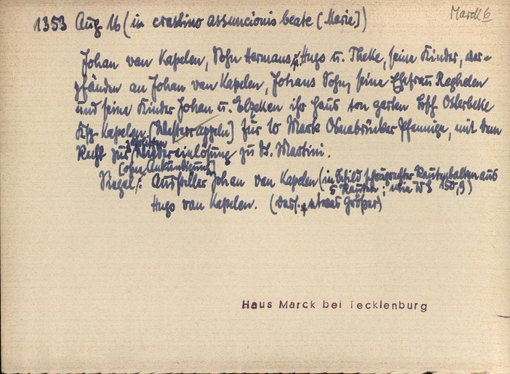 Marck 6
1353 Aug 16 (in crastino assuncionis beate (Marie))
Johan van Kapelen, Sohn Hermans, Hugo u. Theke, seine Kinder, ver-
pfänden an Johan van Kapelen, Johans Sohn, seine Ehefrau Regheken
und seine Kinder Johan u. Elzeken ihr Haus ton garten Ksp. Osterbeke
Ksp. Kapelen [Westerkappeln] für 10 Mark Osnabrücker Pfennige, mit dem
Recht zur Wiedereinlösung zu St. Martini.
[ohne Ankündigung]
Siegel: Aussteller Johan van Kapelen (in Schild schrägrechter Rautenbalken aus
5 Rauten; wie WS 150,9)
Hugo van Kapelen. (dass., etwas größer)
Haus Marck bei Tecklenburg